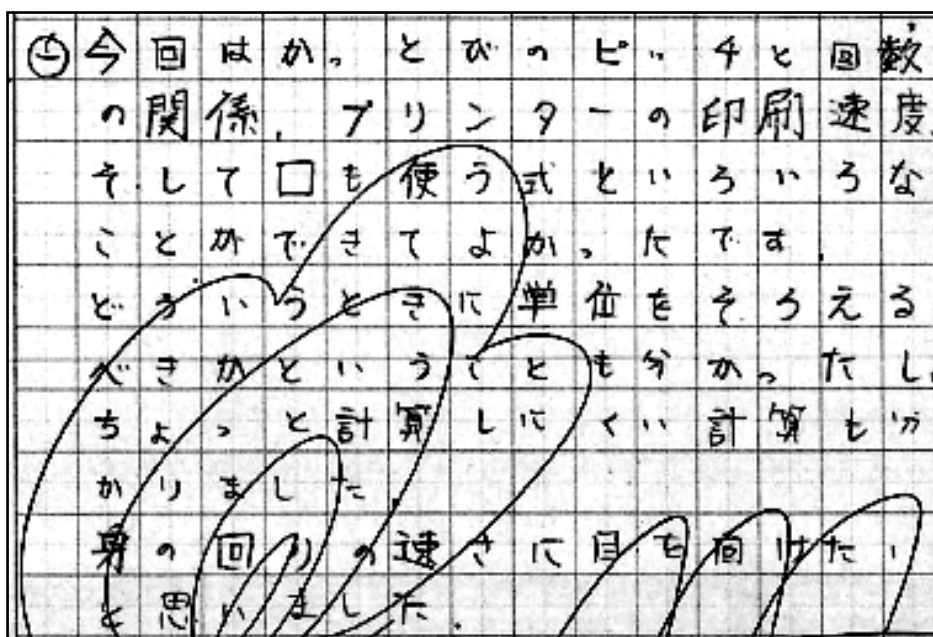 ㋛今回はかっとびのピッチと回数
の関係、プリンターの印刷速度、
そして□も使う式といろいろな
ことができてよかったです。
どういうときに単位をそろえる
べきかということも分かったし、
ちょっと計算しにくい計算も分
かりました。
身の回りの速さに目を向けたい
と思いました。